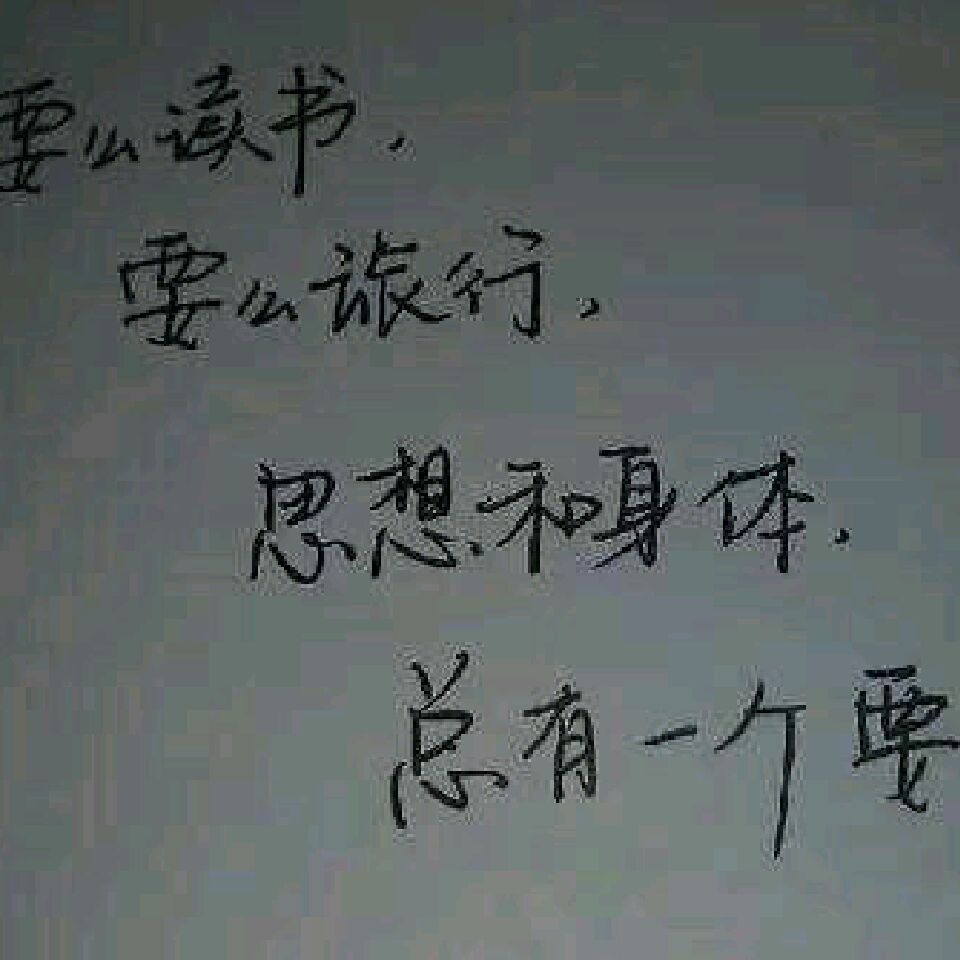 要么读书,
要么旅行,
思想和身体,
总有一个要